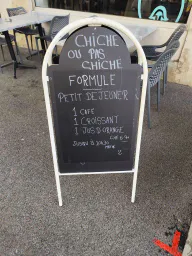 CHICHE
OU PAS
CHICHE
FORMULE
PETIT DEJEUNER
1 CAFE
1 CROISSANT
1 JUS D'ORANGE
JUSQU'A